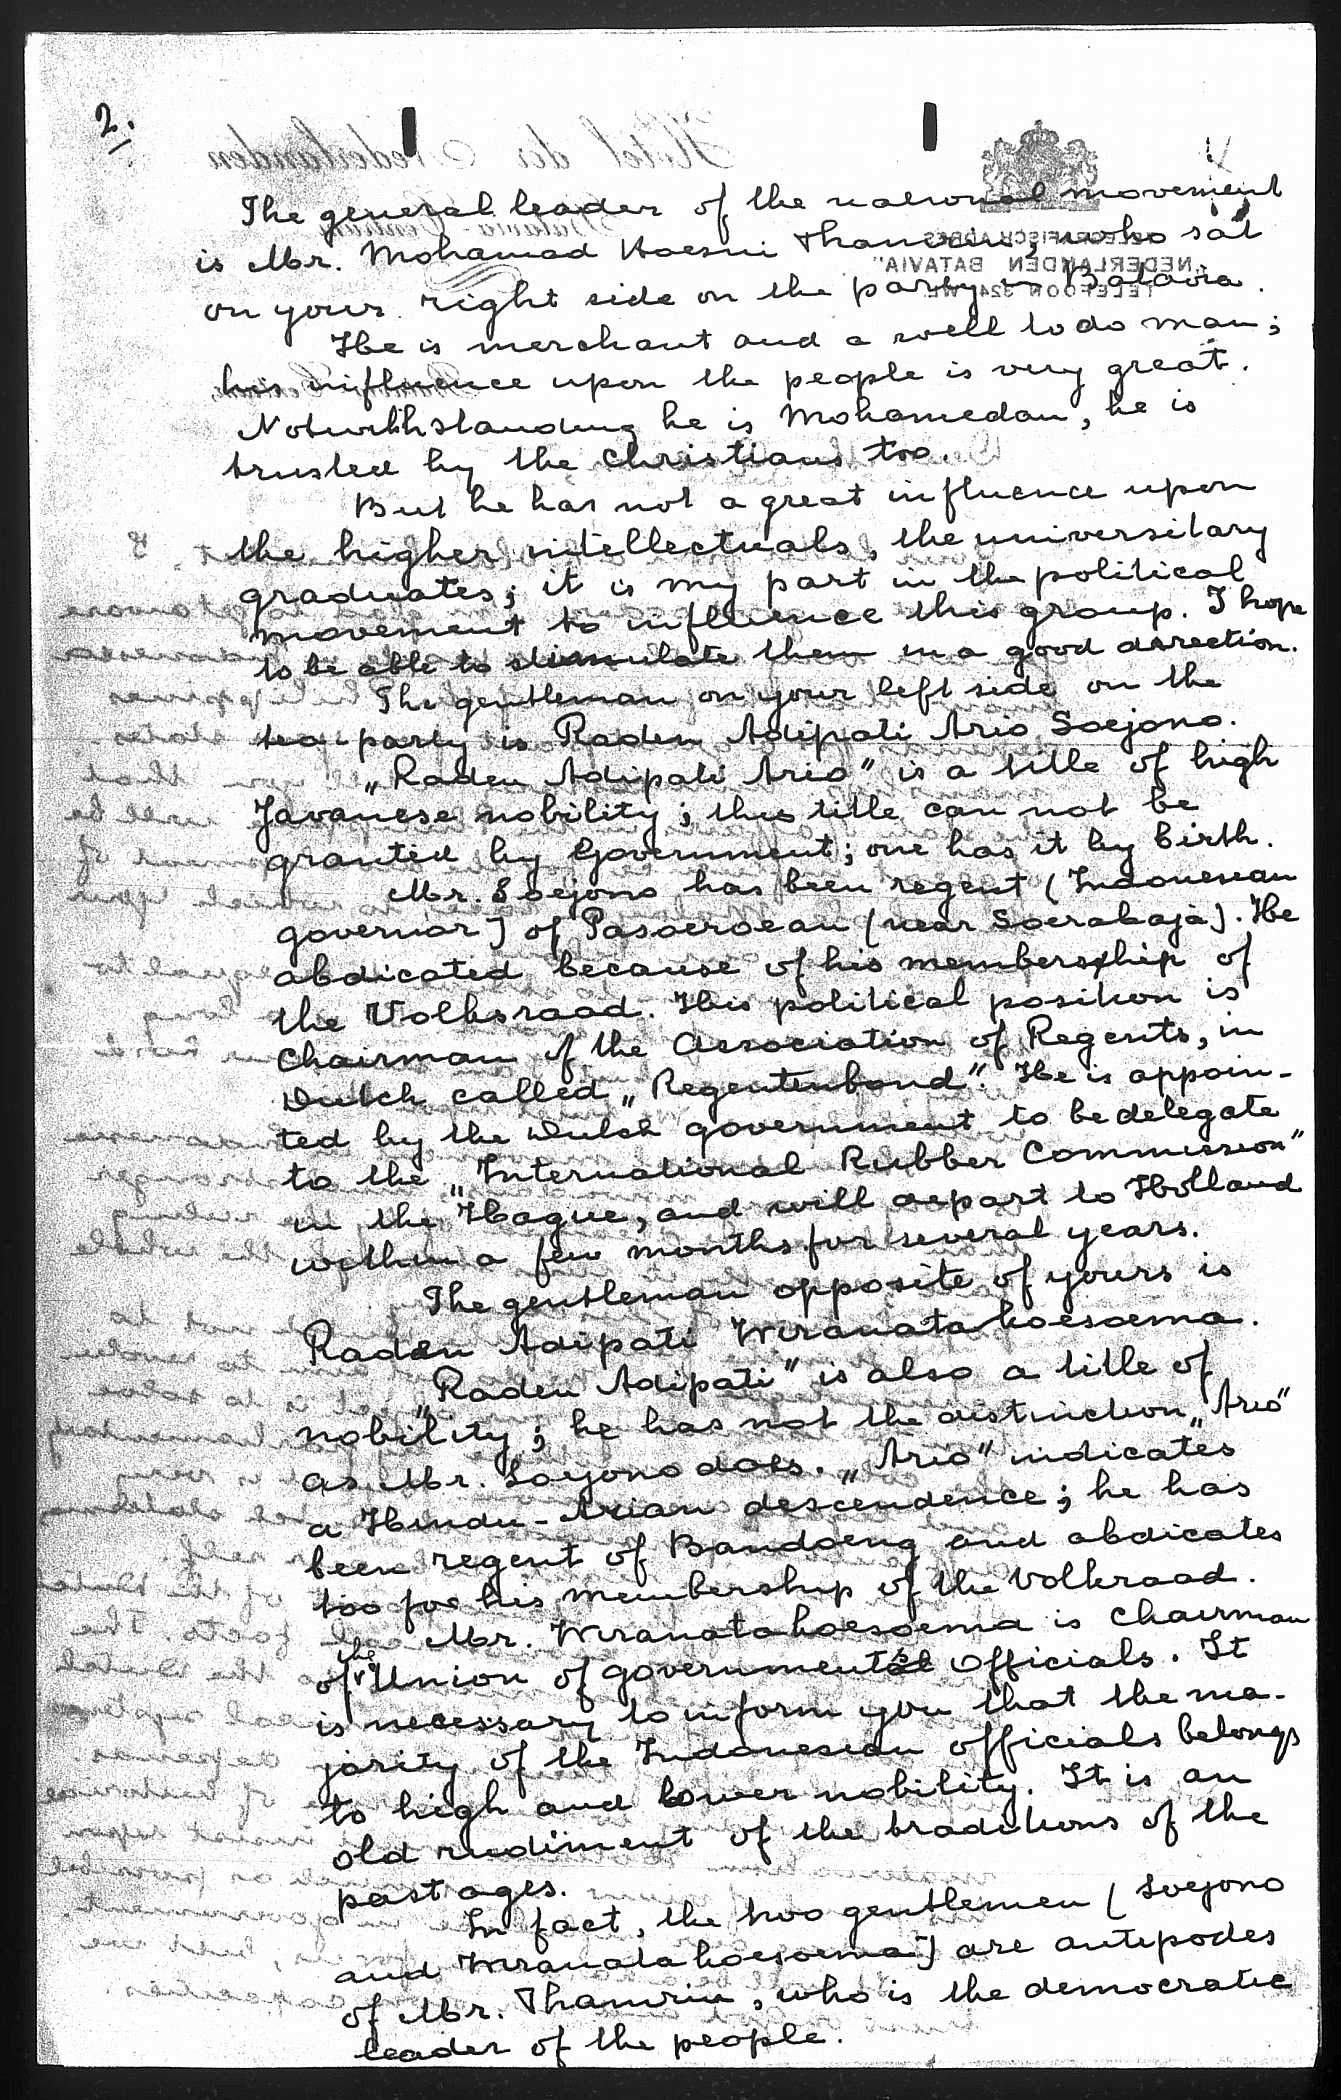 2.
Hotel der Nederlanden
Batavia-Centrum
TELEGRAFISCH ADRES
"NEDERLANDEN BATAVIA"
TELEFOON
The general leader of the national movement
is Mr. Mohamad Hoesni Thamrin, who sat
on your right side on the party in Batavia.
He is merchant and a well to do man;
his influence upon the people is very great.
Notwithstanding he is Mohamedan, he is
trusted by the Christians too.
But he has not a great influence upon
the higher intellectuals, the universitary
graduates; it is my part in the political
movement to influence this group. I hope
to be able to stimulate them in a good direction.
The gentleman on your left side on the
tea-party is Raden Adipati Ario Soejono.
„Raden Adipati Ario" is a title of high
Javanese nobility; this title can not be
granted by Government; one has it by birth.
Mr. Soejono has been regent (Indonesian
governor) of Pasoeroean (near Soerabaja). He
abdicated because of his membership of
the Volksraad. His political position is
Chairman of the Association of Regents, in
Dutch called „Regentenbond". He is appoin-
ted by the Dutch government to be delegate
to the „International Rubber Commission"
in the Hague, and will depart to Holland
within a few months for several years.
The gentleman opposite of yours is
Raden Adipati Wiranatakoesoema.
„Raden Adipati" is also a title of
nobility; he has not the distinction „Ario"
as Mr. Soejono does. „Ario" indicates
a Hindu-Arian descendence; he has
been regent of Bandoeng and abdicates
too for his membership of the Volkraad.
Mr. Wiranatakoesoema is Chairman
of the Union of governmental Officials. It
is necessary to inform you that the ma-
jority of the Indonesian officials belongs
to high and lower nobility. It is an
old rudiment of the traditions of the
past ages.
In fact, the two gentlemen (Soejono
and Wiranatakoesoema) are antipodes
of Mr. Thamrin, who is the democratic
leader of the people.